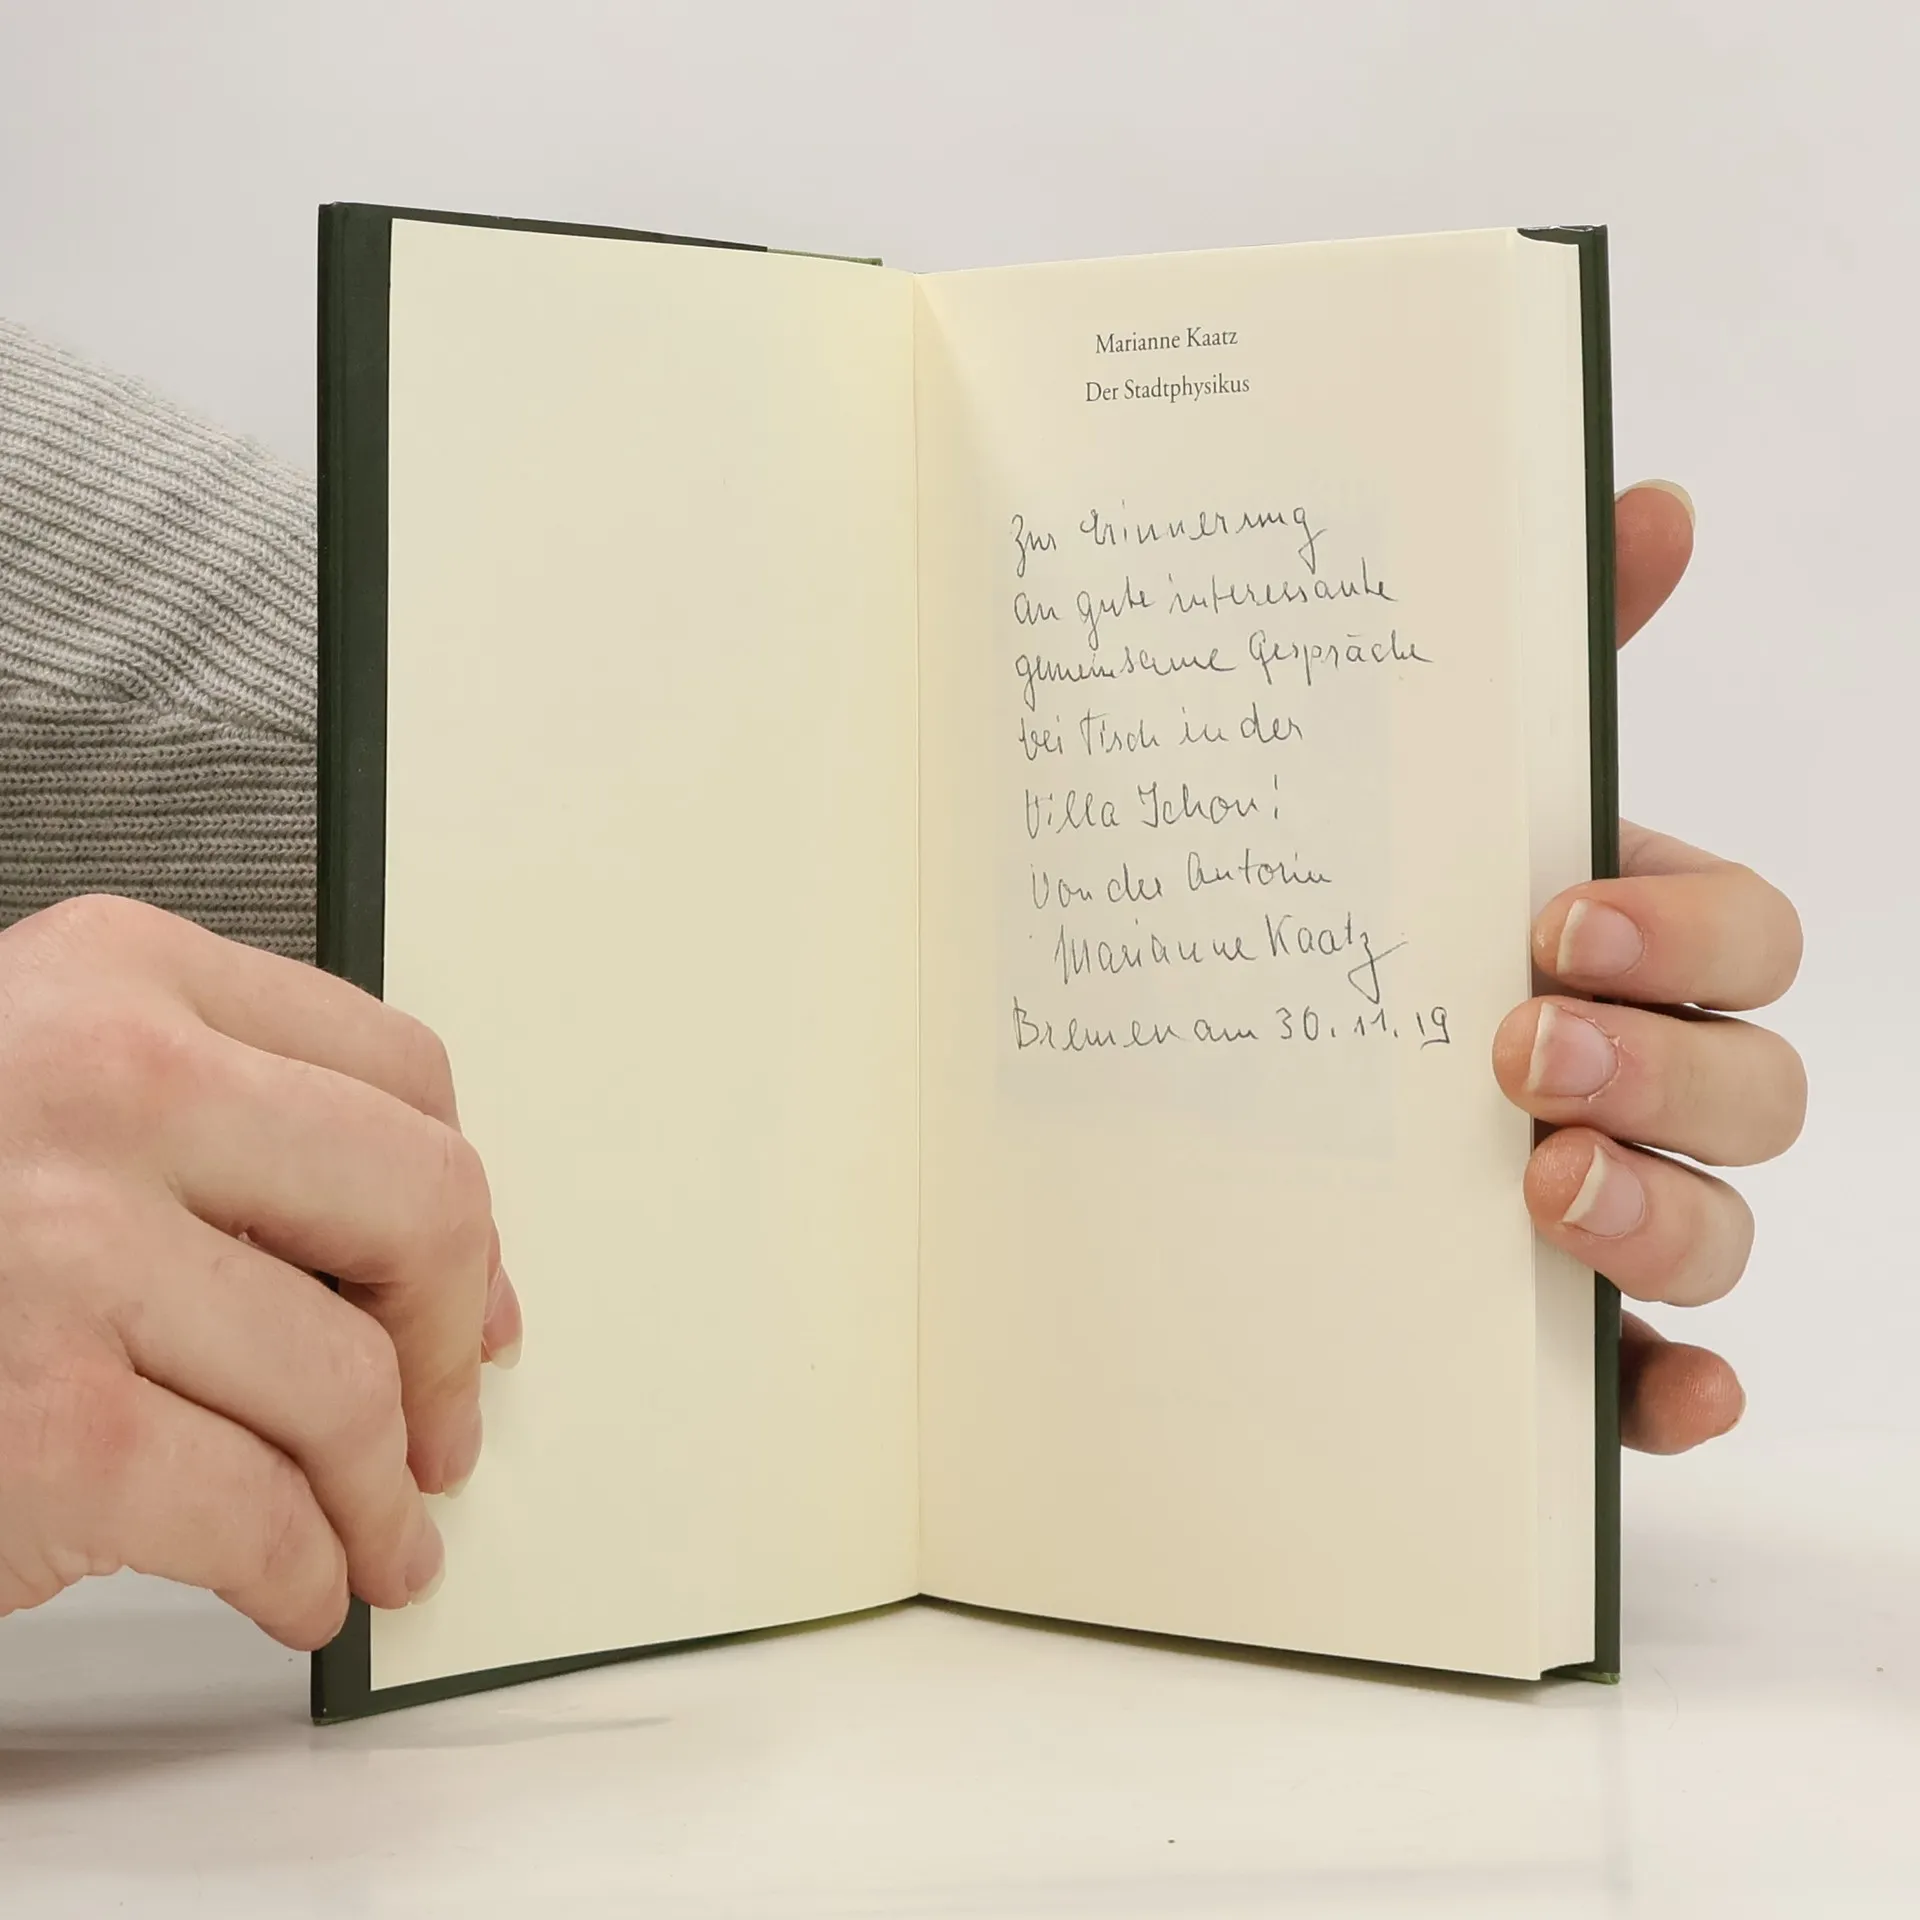 Marianne Kaatz
Der Stadtphysikus
Zur Erinnerung
an gute interessante
gemeinsame Gespräche
bei Tisch in der
Villa Ichon!
Von der Autorin
Marianne Kaatz
Bremen am 30. 11. 19